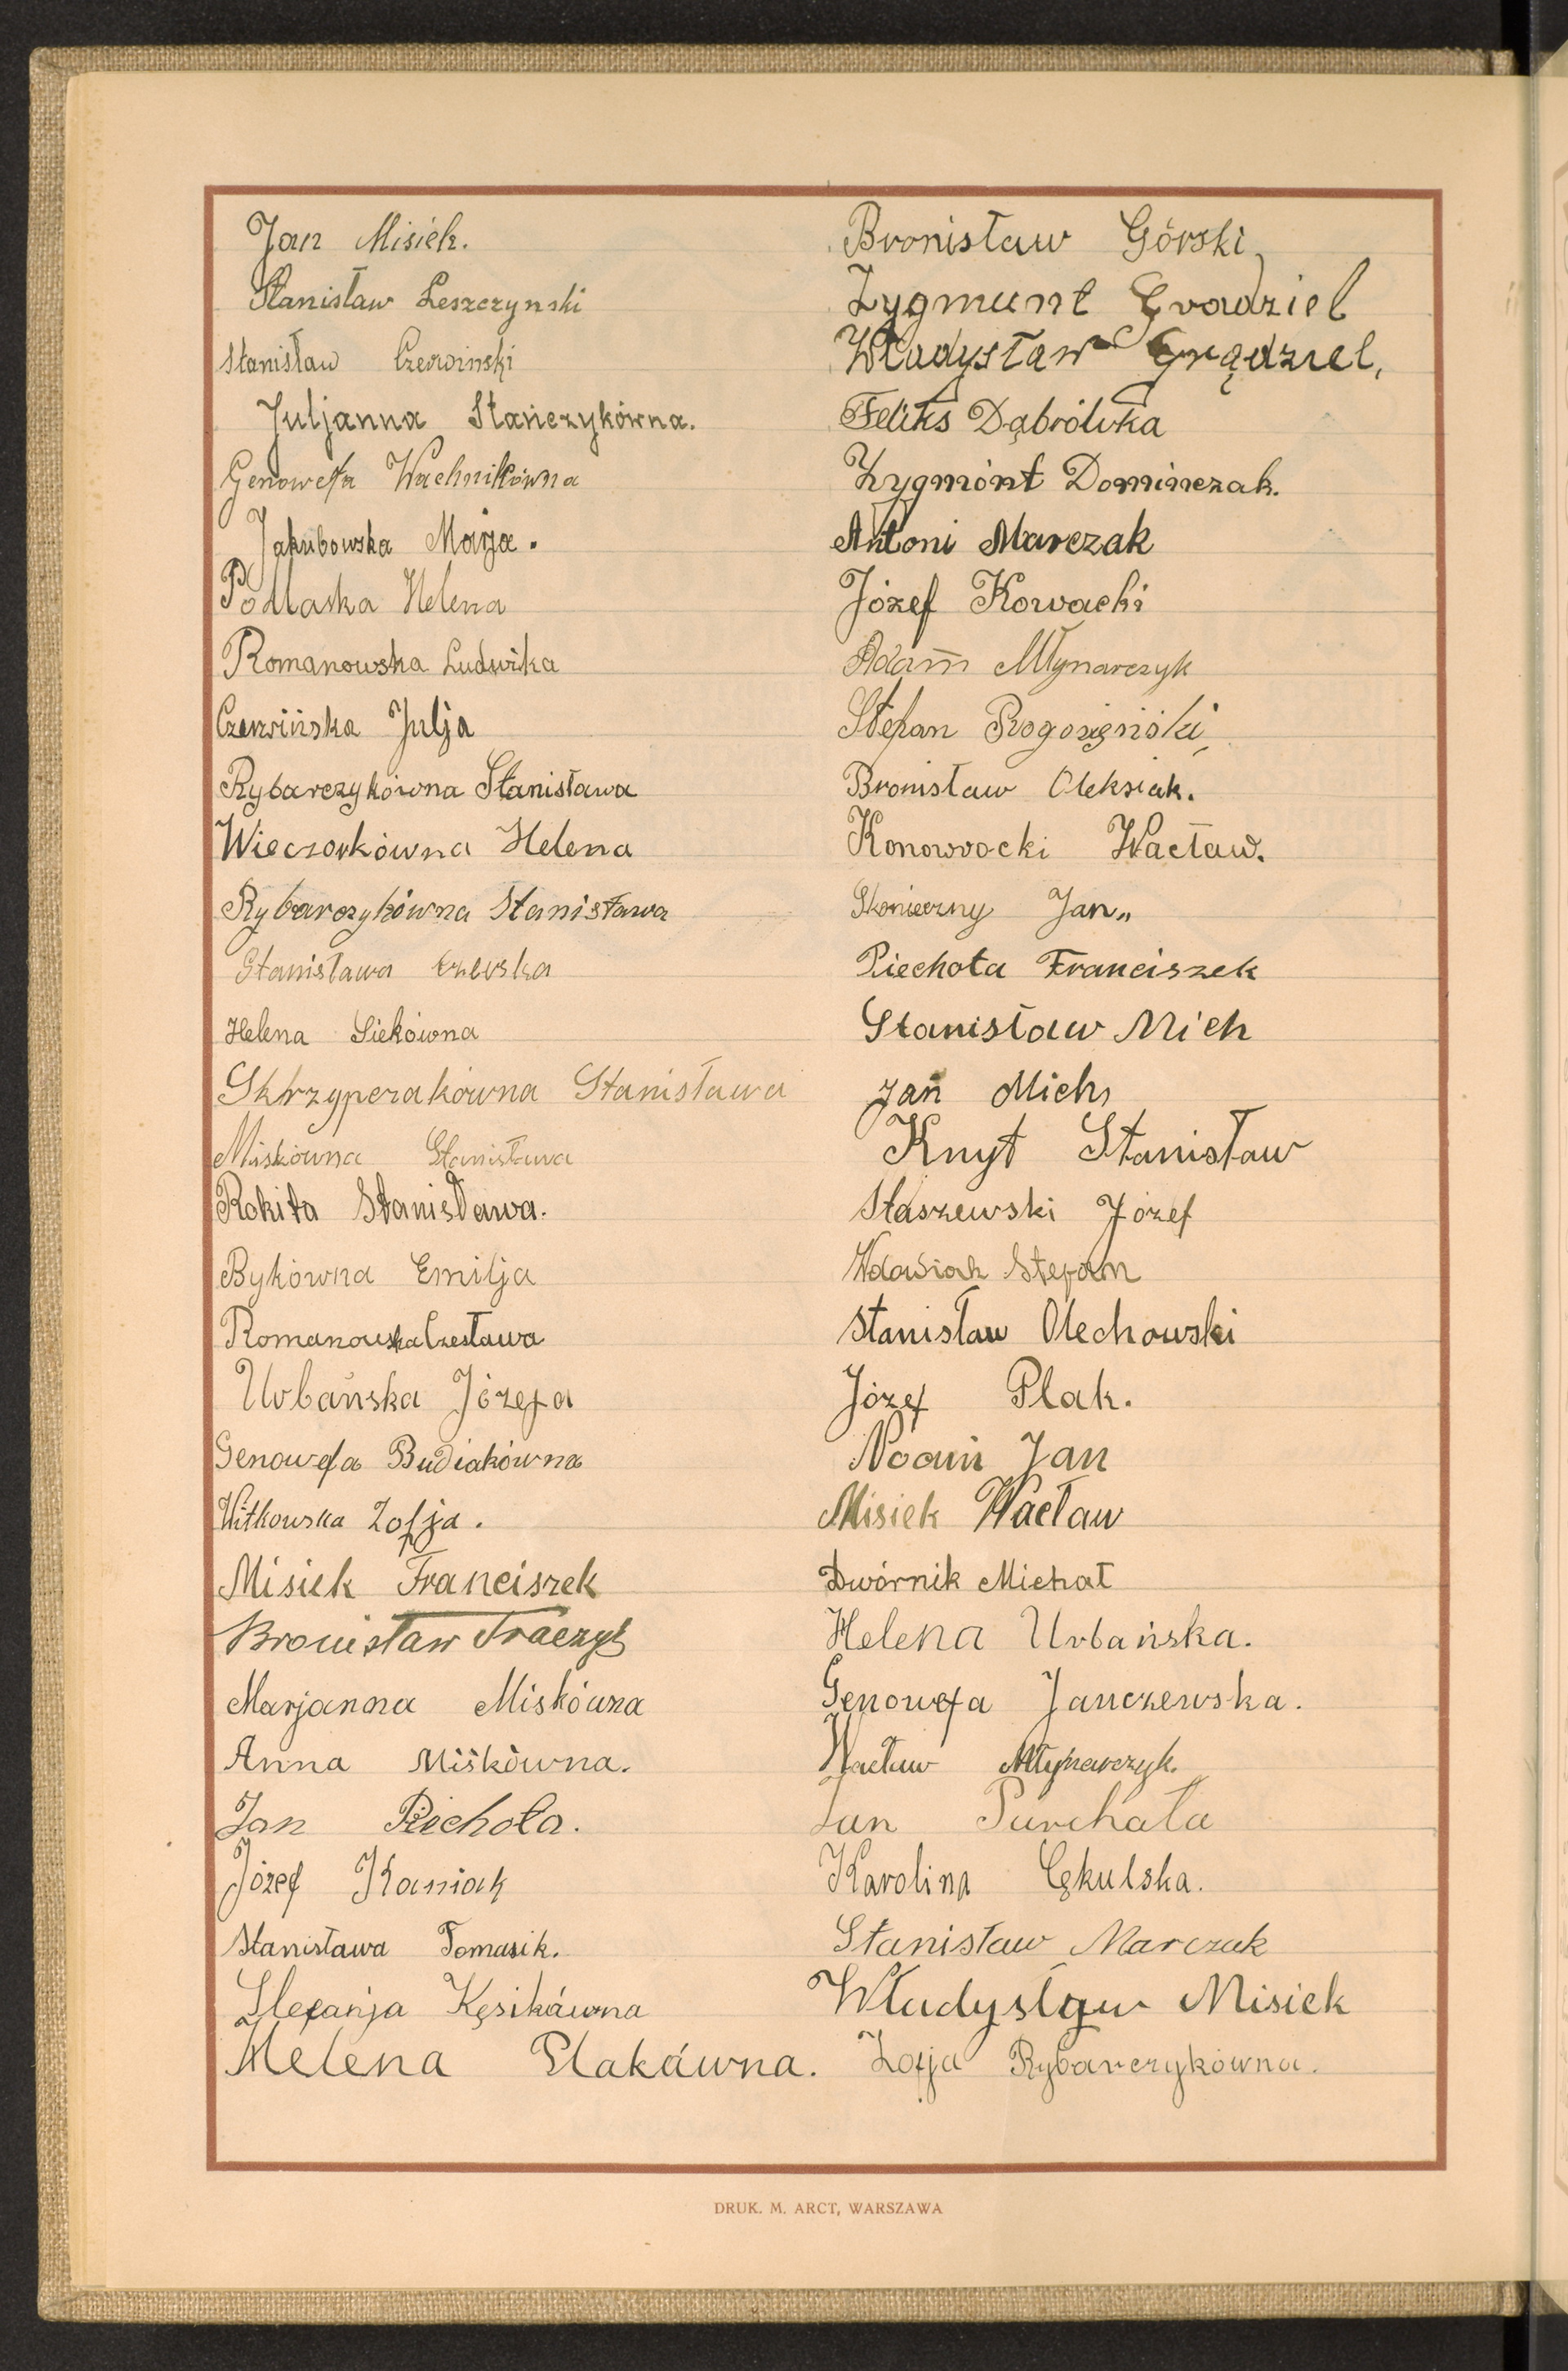 Jan Misiek.
Stanisław Leszczynski
Stanisław Czerwinski
Juljanna Stańczykówna.
Genowefa Wachnikówna
Jakubowska Marja.
Podlaska Helena
Romanowska Ludwika
Czerwińska Julja
Rybarczykówna Stanisława
Wieczorkówna Helena
Rybarczykówna Stanisława
Stanisława
Helena Siekówna
Skrzypczakówna Stanisława
Miskówna Stanisława
Rokita Stanisława.
Bykówna Emilja
Romanowska Czesława
Urbańska Józefa
Genowefa Budiakówna
Witkowska Zofja.
Misiek Franciszek
Bronisław Traczyk
Marjanna Miskówna
Anna Miśkówna.
Jan Piechota.
Józef Kaniak
Stanisława Tomasik.
Stefanja Kęsikówna
Helena Plakówna.
Bronisław Górski
Zygmunt Gradziel
Władysław Grądziel,
Feliks Dąbrówka
Zygmónt Dominczak.
Antoni Marczak
Józef Kowacki
Adam Młynarczyk
Stefan
Bronisław Oleksiak.
Konowrocki Wacław.
Skonieczny Jan„
Piechota Franciszek
Stanisław Mich
Jan Mich
Knyt Stanisław
Staszewski Józef
Wdowiak Stefan
Stanisław Olechowski
Józef Plak.
Jan
Misiek Wacław
Dwórnik Michał
Helena Urbańska.
Genowefa Janczewska.
Wacław Młynarczyk.
Jan Purchała
Karolina Cękulska.
Stanisław Marczak
Władysław Misiek
Zofja Rybarczykówna.
DRUK. M. ARCT, WARSZAWA